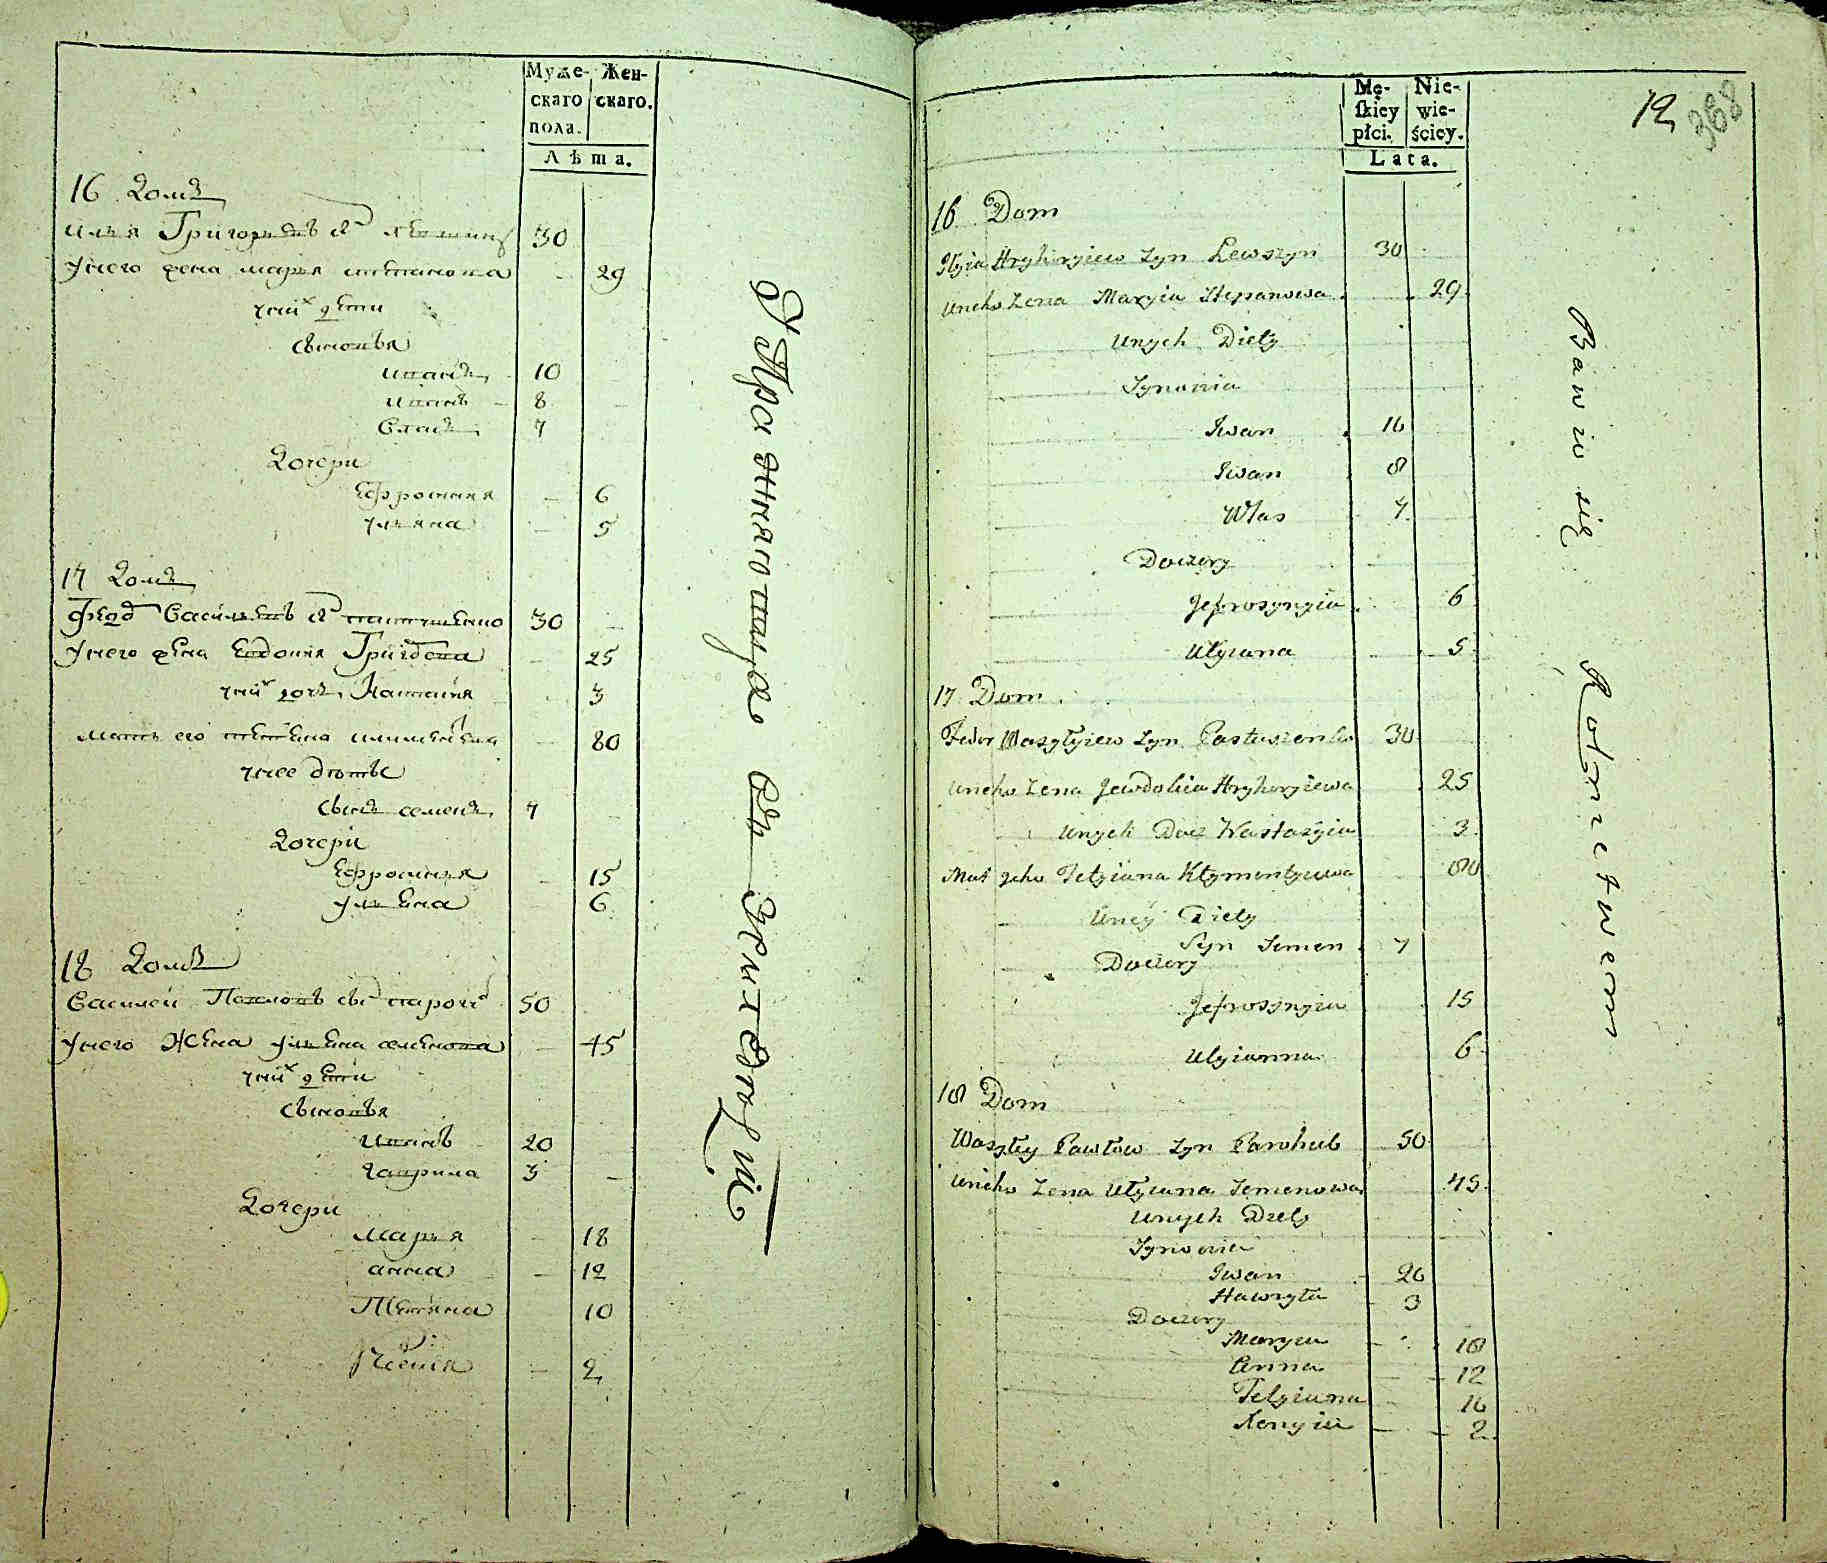 Муже-
скаго
пола.
Жен-
скаго.
Лѣта.
16 Домъ
Илья Григорьевъ сн Левшинъ 30
У него жена Марья Степанова 29
У них дети
Сыновья
Иванъ 10
Иванъ 8
Власъ 7
Дочери
Ефросиния 6
Ульяна 5
17 Домъ
Федор Васильевъ сн Пастушенко 30
У него жена Евдокия Григорева 25
У них дочь Настасия 3
Мать его Тетяна Климентева 80
У нее дети
Сынъ Семенъ 7
Дочери
Ефросиния 15
Ульяна 6
18 Домъ
Василей Павловъ сн 50
У него Жена Ульяна Семенова 45
У них дети
Сыновья
Иванъ 20
Гаврила 3
Дочери
Марья 18
Анна 12
Тетяна 10
Ксения 2
Mę-
skiey
płci.
Nie-
wie-
ściey.
Lata.
12
368
16 Dom
Ilyia Hryhoryiew Syn Lewszyn 30
Uneho Zena Maryia Stepanowa 29
Unych Diety
Synowia
Iwan 10
Iwan 8
Włas 7
Doczery
Jefrosynyia 6
Ulyiana 5
17 Dom
Fedor Wasylyiew Syn Pastuszenko 30
Uneho Zena Jewdokia Hryhoryiewa 25
Unych Docz Nastasyia 3
Mat jeho Tetyiana Klymentyiewa 80
Uney Diety
Syn Semen 7
Doczery
Jefrosynyia 15
Ulyianna 6
18 Dom
Wasyley Pawłow Syn Parohub 50
Uneho Zena Ulyiana Semenowa 45
Unych Diety
Synowia
Iwan 20
Hawryła 3
Doczery
Maryia 18
Anna 12
Tetyiana 10
Xenyia 2
Bawiw się Rolnictwem